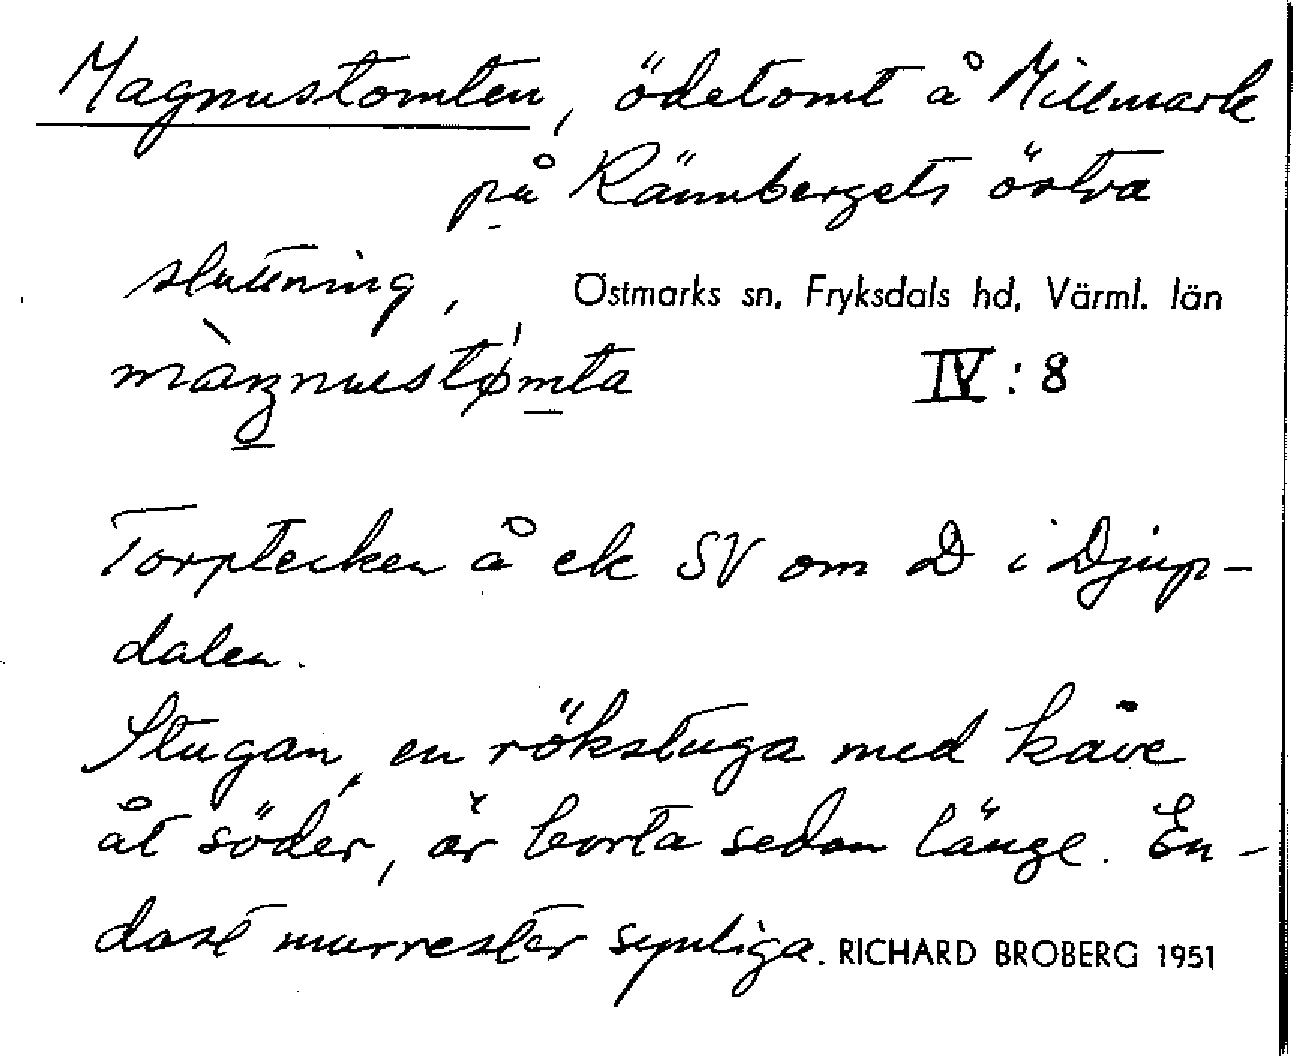 Magnustomten, ödetomt å Millmark
på Rännbergets östra
sluttning, Östmarks sn, Fryksdals hd, Värml. län
IV:8
Torptecken å ek SV om D i Djup-
dalen.
Stugan, en rökstuga med kåve
åt söder, är borta sedan länge. En-
dast murrester synliga. RICHARD BROBERG 1951